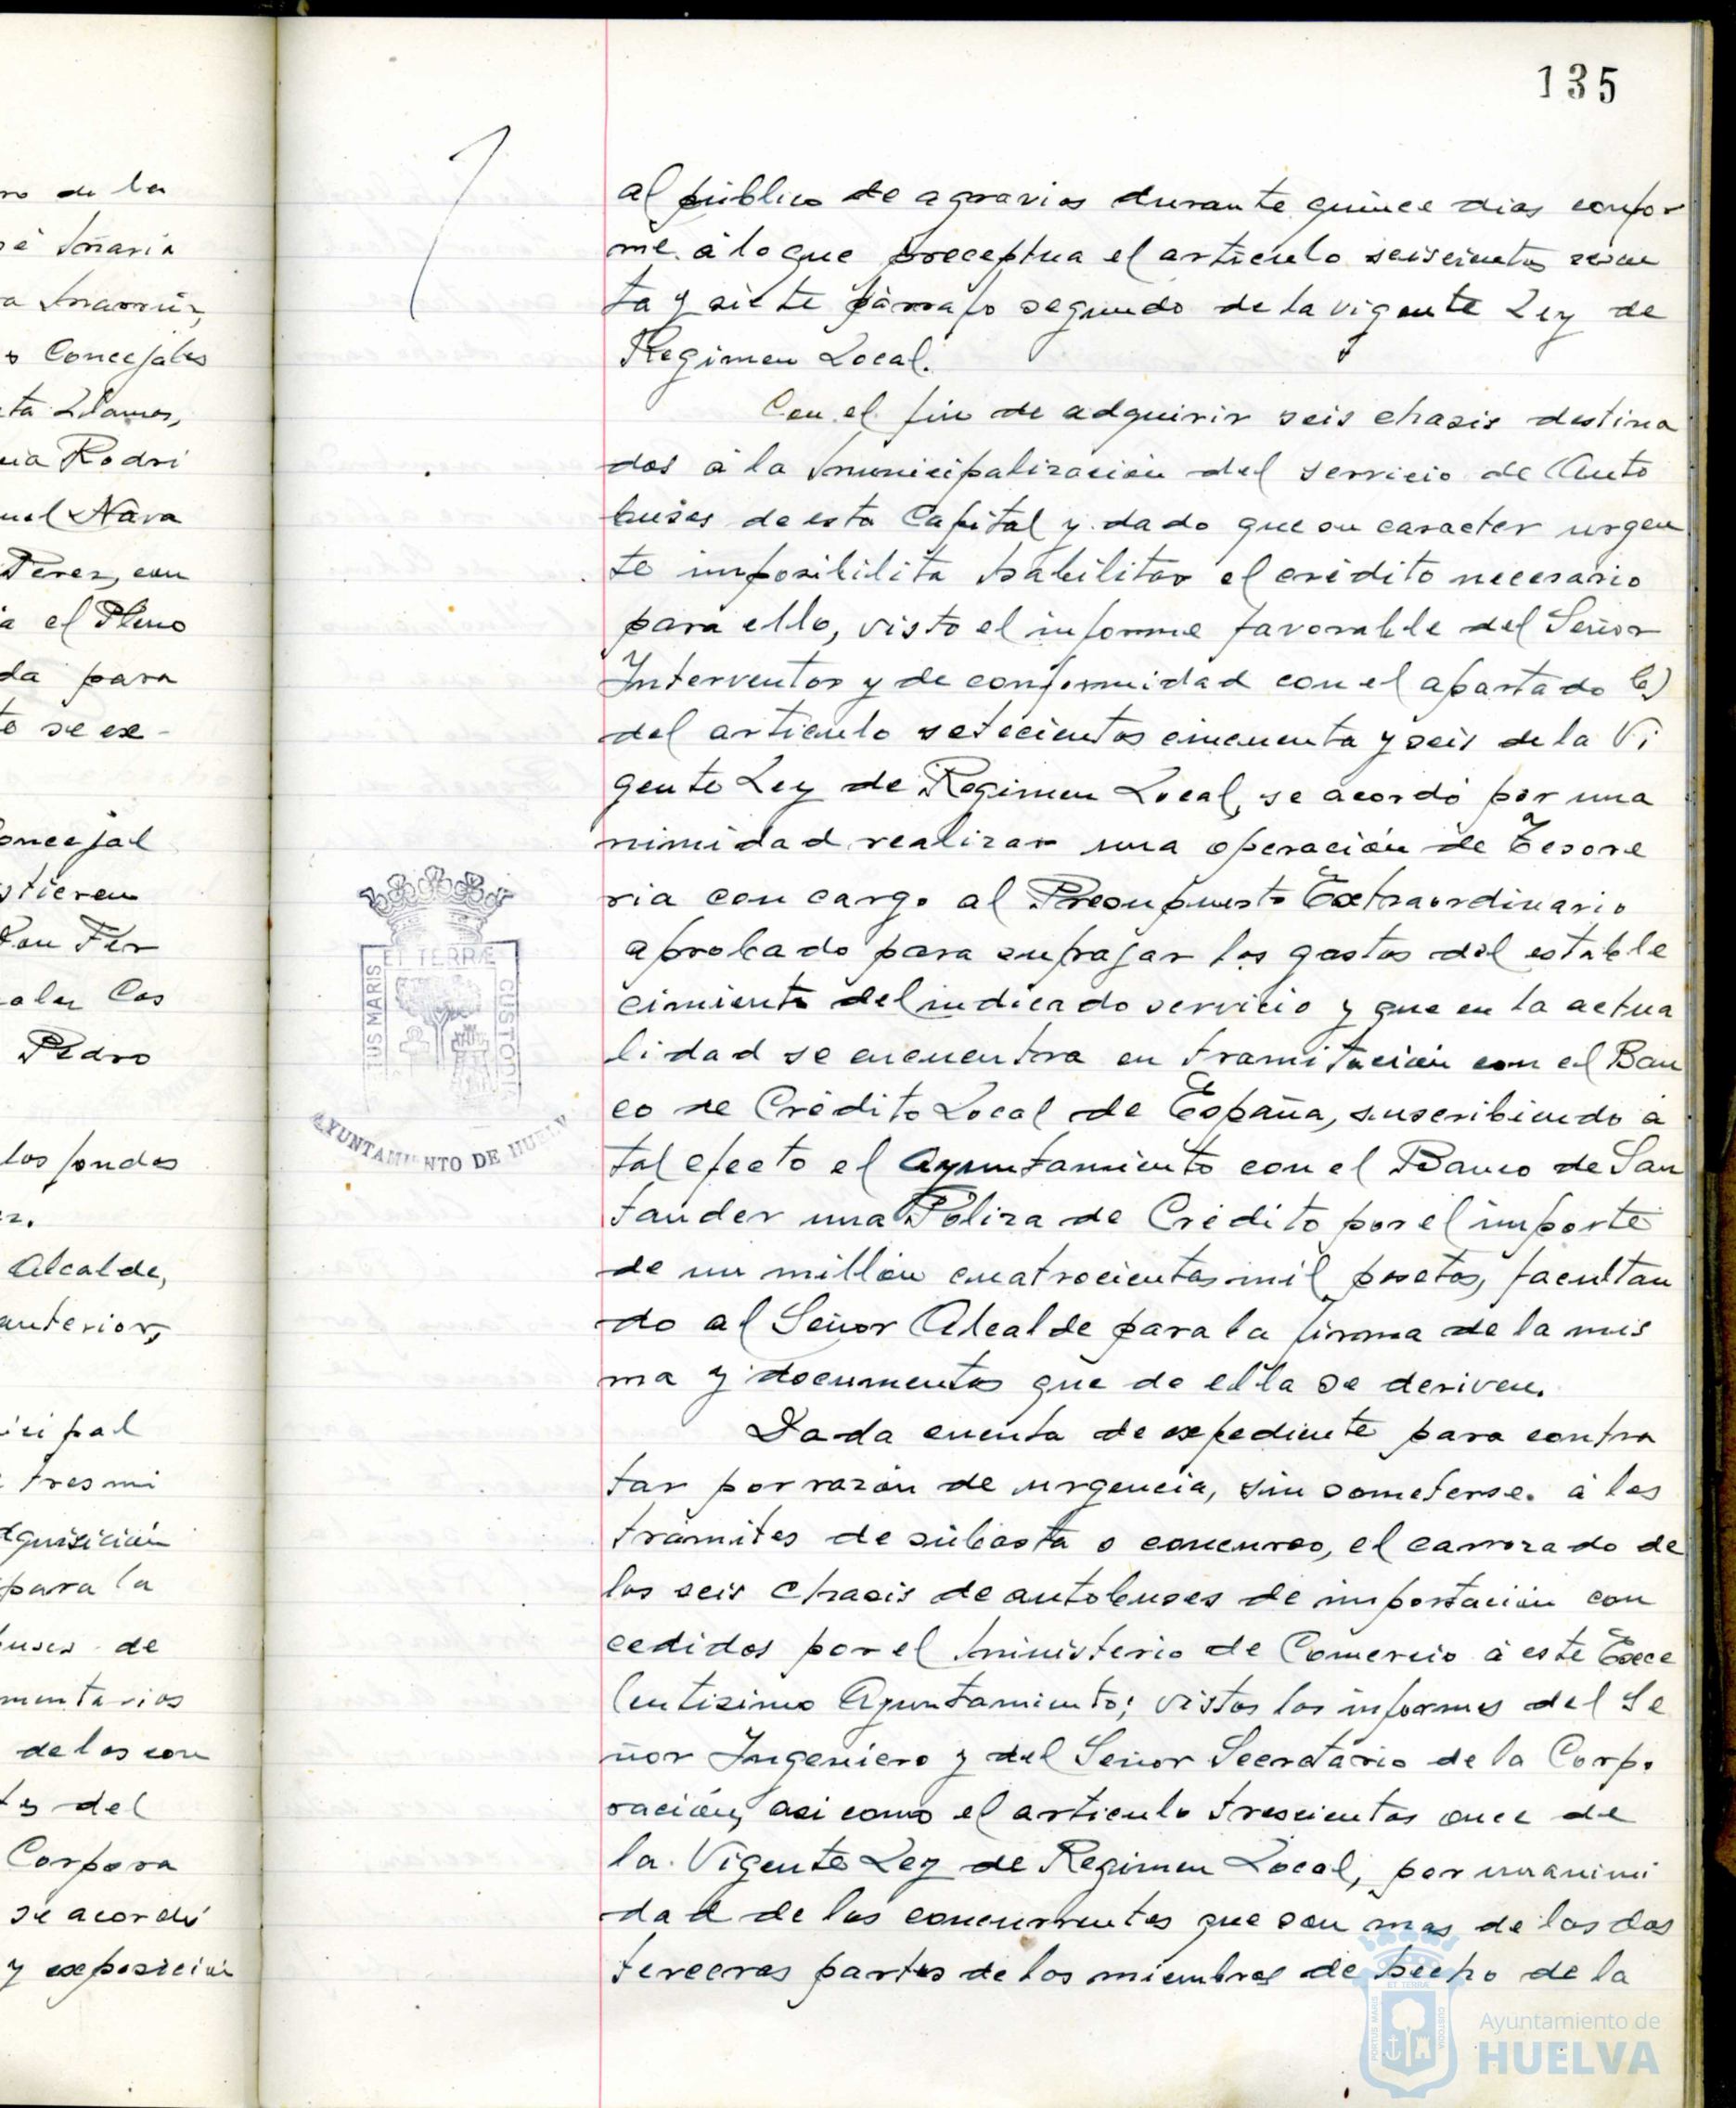 135
al público de agravios durante quince dias confor
me á lo que preceptua el articulo seiscientos
ta y siete párrafo segundo de la vigente Ley de
Regimen Local.
Con el fin de adquirir seis chasis destina
dos á la municipalización del servicio de Auto
buses de esta Capital y dado que su caracter urgen
te imposibilita habilitar el crédito necesario
para ello, visto el informe favorable del Señor
Interventor y de conformidad con el apartado b)
del articulo setecientos cincuenta y seis de la Vi
gente Ley de Regimen Local, se acordó por una
nimidad realizar una operación de Tesore
ria con cargo al Presupuesto Extraordinario
aprobado para sufragar los gastos del estable
cimiento del indicado servicio y que en la actua
lidad se encuentra en tramitación con el Ban
co de Crédito Local de España, suscribiendo á
tal efecto el Ayuntamiento con el Banco de San
tander una Póliza de Crédito por el importe
de un millón cuatrocientas mil pesetas, facultan
do al Señor Alcalde para la firma de la mis
ma y documentos que de ella se deriven.
Dada cuenta de expediente para contra
tar por razón de urgencia, sin someterse á los
trámites de subasta o concurso, el carrozado de
los seis chasis de autobuses de importación con
cedidos por el Ministerio de Comercio á este Exce
lentisimo Ayuntamiento; vistos los informes del Se
ñor Ingeniero y del Señor Secretario de la Corpo
ración, asi como el articulo trescientos once de
la Vigente Ley de Regimen Local, por unanimi
dad de los concurrentes que son mas de las dos
terceras partes de los miembros de hecho de la
no de la
Concejales
Rodri
Nava
Perez, con
el Pleno
da para
se ex-
Concejal
Don Fer
Pedro
los fondos
Alcalde,
anterior,
tres mi
para la
de
de los con
del
Corpora
se acordó
y exposición
ET TERRÆ
CUSTODI
AYUNTAMIENTO DE HUELV
PORTUS MARIS
ET TERRA
CUSTODIA
Ayuntamiento de
HUELVA